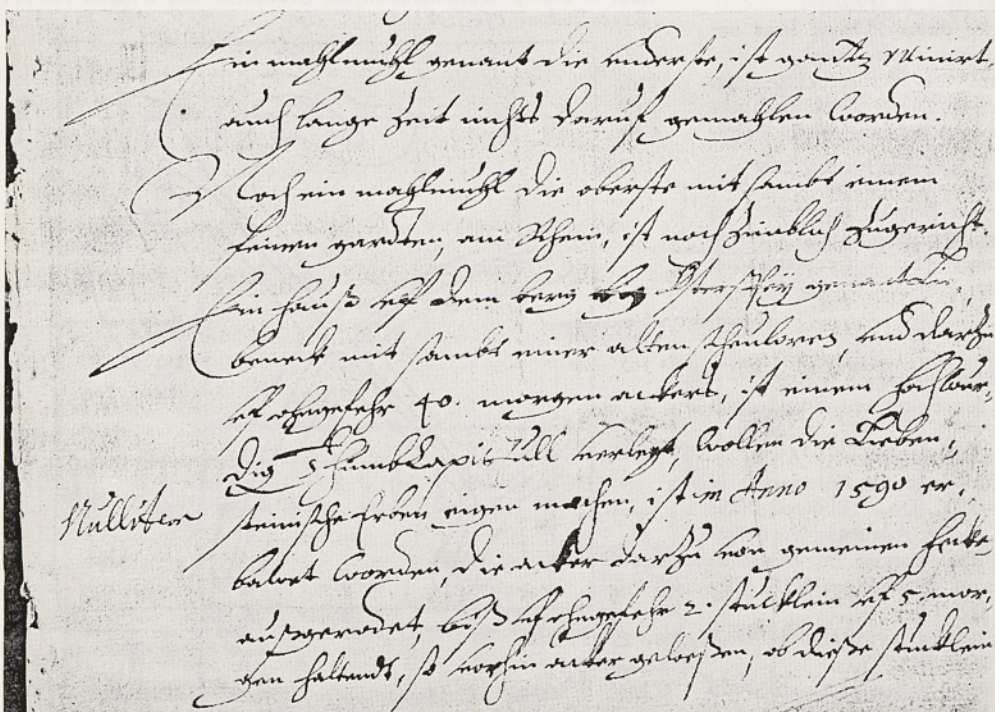 Ein mahlmuhl genant die underste, ist gantz Ruinirt,
auch lange Zeit nichts daruf gemahlen worden.
Noch ein mahlmuhl die oberste mit sambt einem
feinen gardten, am Rhein, ist noch zimblich zugericht.
Ein hauß uf dem berg bey Osterspey genant Lie,
beneck mit sambt einer alten scheuloren und darzu
uf ohngefehr 40. morgen ackers, ist einem hochwur,
dig Thumb Capitull verlegt, wollen die Lieben,
steinische Erben eigen machen, ist im Anno 1590 er,
bawet worden, die acker darzu von gemeinen hecke
Nulliter
außgerodet, biß uf ohngefehr 2. stucklein uf 5. mor,
gen haltendt, so vorhin acker geweßen, ob dieße stucklein